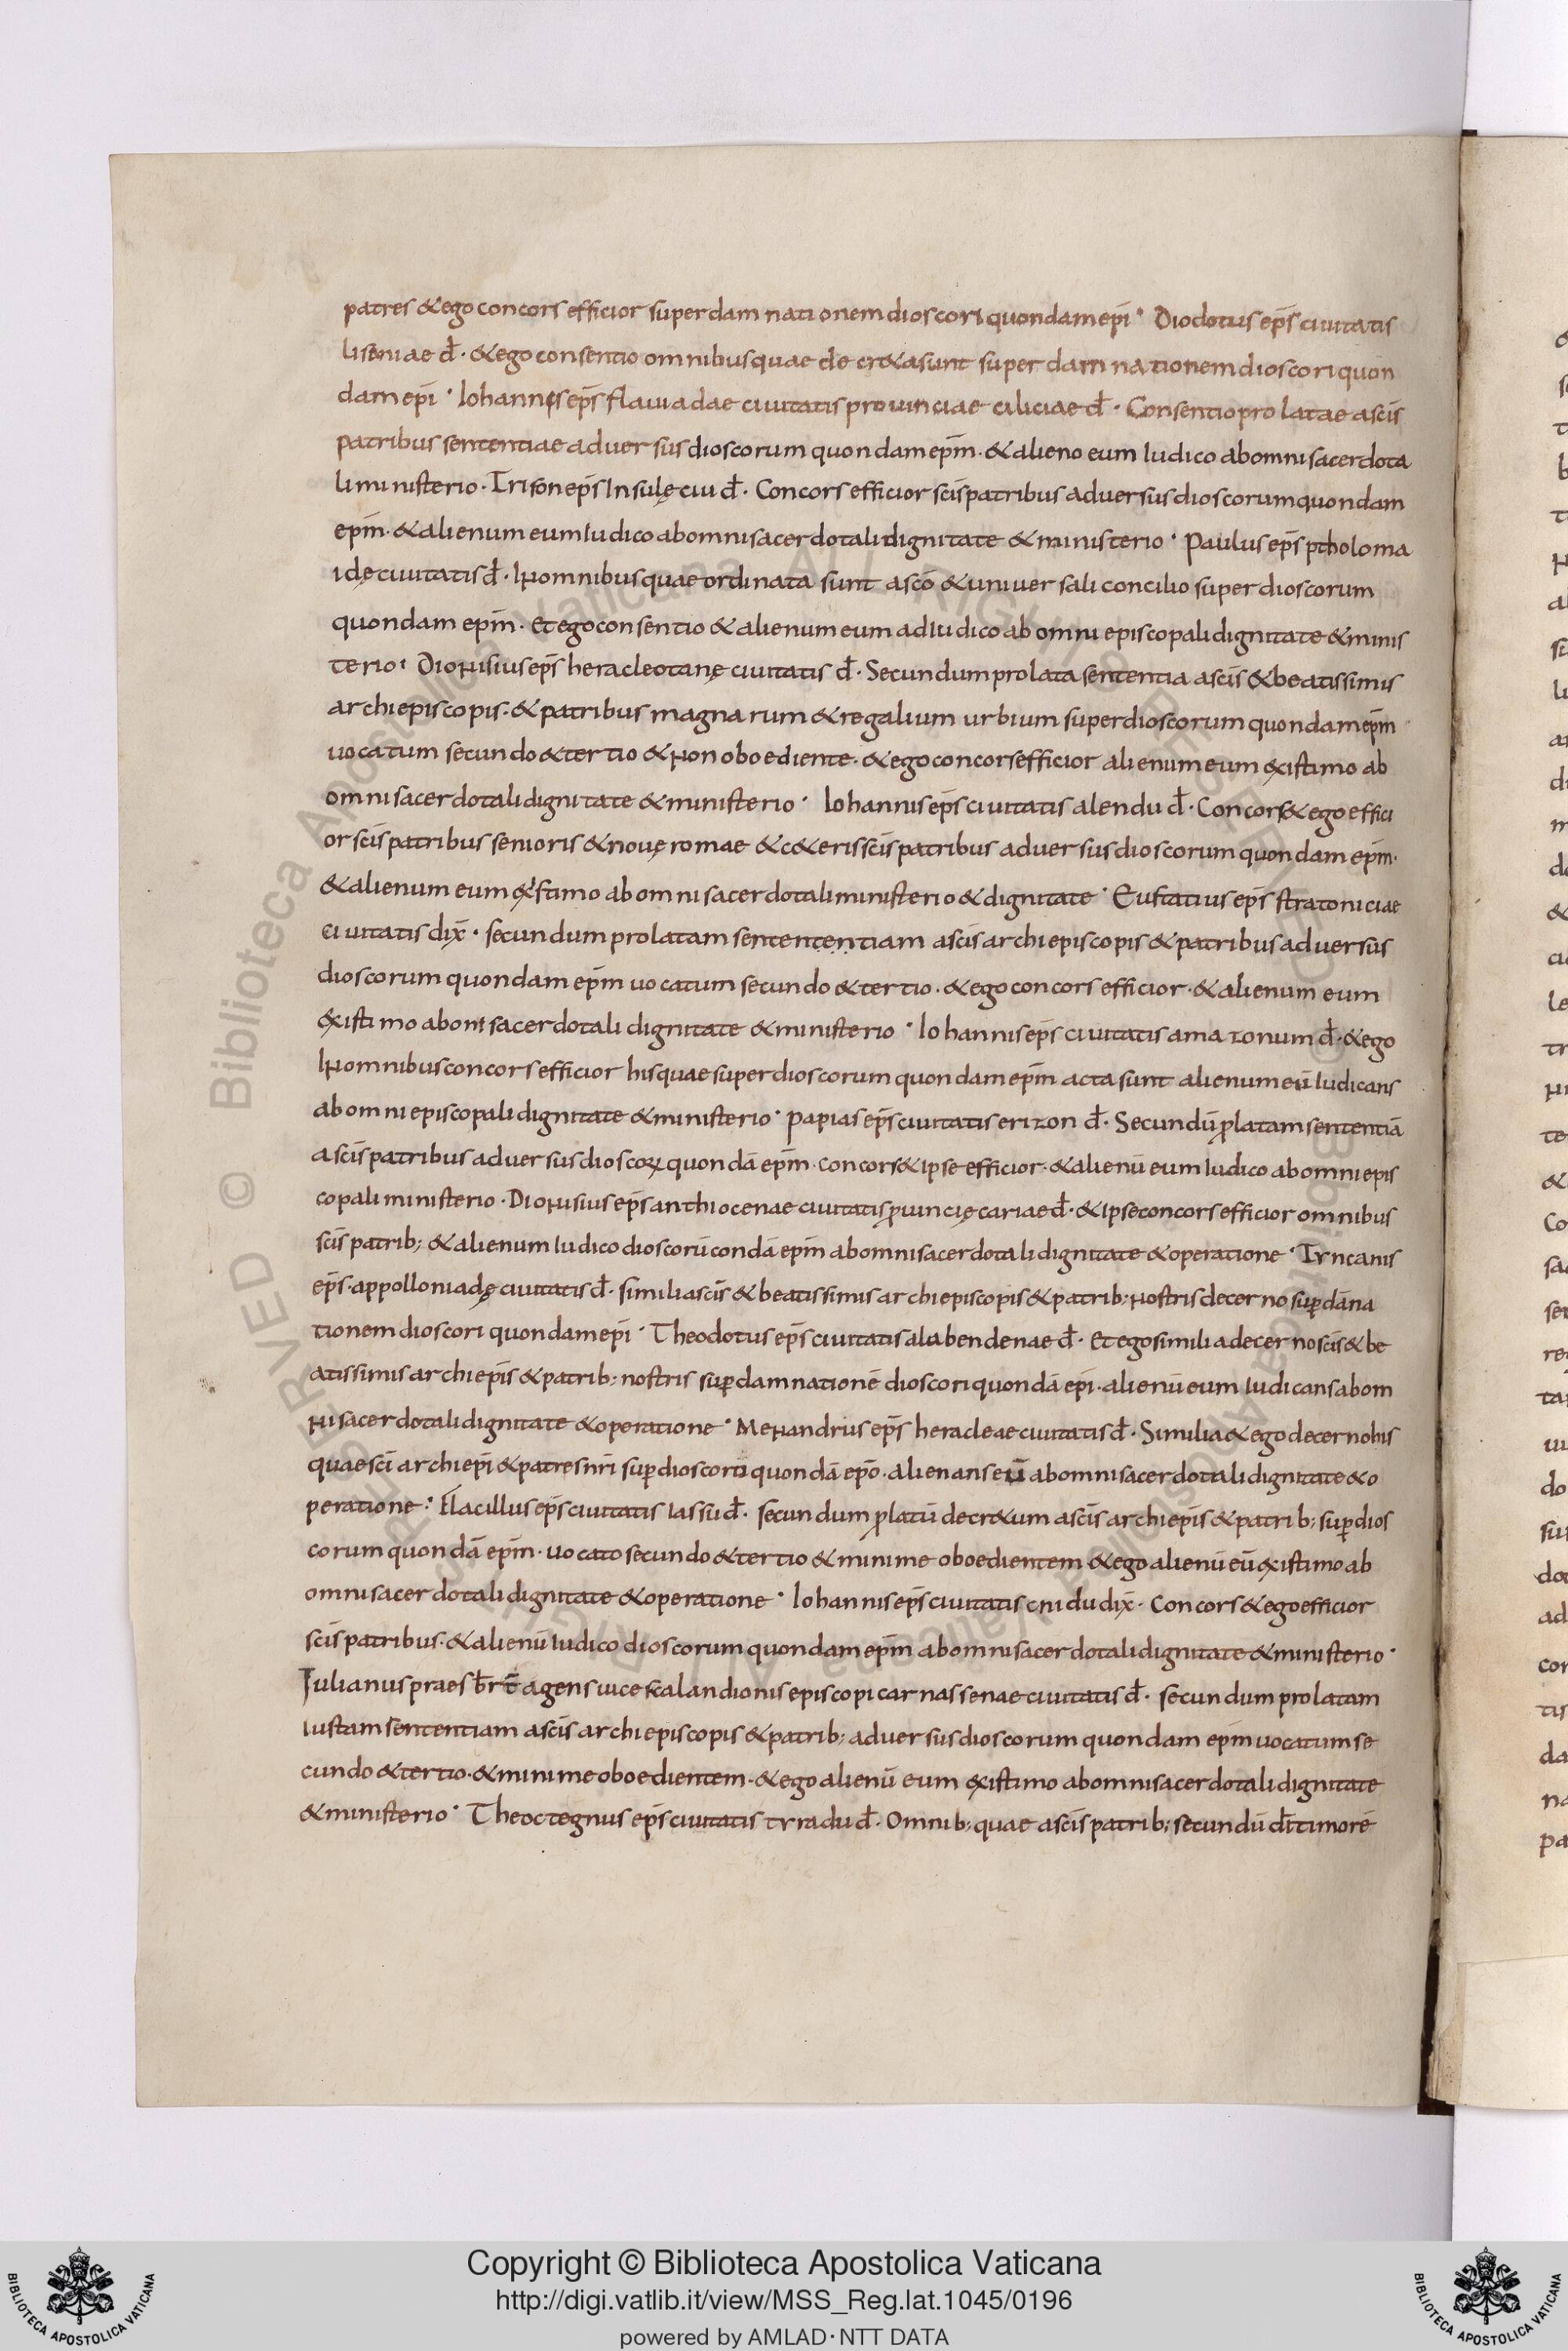 patres & ego concors efficior super damnationem dioscori quondam epī · Diodotus ep̄s ciuitatis
liseniae d̄ · & ego consentio omnibus quae decr&a sunt super damnationem dioscori quon
dam epī · Iohannis ep̄s flauiadae ciuitatis prouinciae ciliciae d̄ · Consentio prolatae a sc̄is
patribus sententiae aduersus dioscorum quondam ep̄m · & alieno eum Iudico ab omni sacerdota
li ministerio · Trifon ep̄s Insulę ciui d̄ · Concors efficior sc̄is patribus aduersus dioscorum quondam
ep̄m · & alienum eum Iudico ab omni sacerdotali dignitate & ministerio · Paulus ep̄s ptholoma
idę ciuitatis d̄ · IN omnibus quae ordinata sunt a sc̄o & uniuersali concilio super dioscorum
quondam ep̄m · Et ego consentio & alienum eum adIudico ab omni episcopali dignitate & minis
terio · Dionisius ep̄s heracleotanę ciuitatis d̄ · Secundum prolata sententia a sc̄is & beatissimis
archiepiscopis · & patribus magnarum & regalium urbium super dioscorum quondam ep̄m
uocatum secundo & tertio & Non oboediente · & ego concors efficior alienum eum existimo ab
omni sacerdotali dignitate & ministerio · Iohannis ep̄s ciuitatis alendu d̄ · Concors & ego effici
or sc̄is patribus senioris & nouę romae & c&eris sc̄is patribus aduersus dioscorum quondam ep̄m ·
& alienum eum exstimo ab omni sacerdotali ministerio & dignitate · Eustatius ep̄s stratoniciae
ciuitatis dix̄ · secundum prolatam sentententiam a sc̄is archiepiscopis & patribus aduersus
dioscorum quondam ep̄m uocatum secundo & tertio · & ego concors efficior · & alienum eum
existimo ab oni sacerdotali dignitate & ministerio · Iohannis ep̄s ciuitatis amazonum d̄ · & ego
IN omnibus concors efficior his quae super dioscorum quondam ep̄m acta sunt alienum eū Iudicans
ab omni episcopali dignitate & ministerio · Papias ep̄s ciuitatis erizon d̄ · Secundū ꝓlatam sententiā
a sc̄is patribus aduersus dioscoꝝ quondā ep̄m · concors & Ipse efficior · & alienū eum Iudico ab omni epis
copali ministerio · Dionisius ep̄s anthiocenae ciuitatis ꝓuincię cariae d̄ · & Ipse concors efficior omnibus
sc̄is patrib; & alienum Iudico dioscorū condā ep̄m ab omni sacerdotali dignitate & operatione · Tyncanis
ep̄s · appolloniadę ciuitatis d̄ · simili a sc̄is & beatissimis archiepiscopis & patrib; Nostris decerno suꝑ dāna
tionem dioscori quondam epī · Theodotus ep̄s ciuitatis alabendenae d̄ · Et ego similia decerno sc̄is & be
atissimis archiepīs & patrib; nostris suꝑ damnationē dioscori quondā epī · alienū eum Iudicans ab om
Ni sacerdotali dignitate & operatione · MeNandrus ep̄s heracleae ciuitatis d̄ · Similia & ego decerno his
quae sc̄i archiepī & patres nr̄i suꝑ dioscoro quondā ep̄o · alienans eū ab omni sacerdotali dignitate & o
peratione · Flacillus ep̄s ciuitatis Iassu d̄ · secundum ꝓlatū decr&um a sc̄is archiepīs & patrib; suꝑ dios
corum quondā ep̄m · uocato secundo & tertio & minime oboedientem & ego alienū eū existimo ab
omni sacerdotali dignitate & operatione · Iohannis ep̄s ciuitatis cnidu dix̄ · Concors & ego efficior
sc̄is patribus · & alienū Iudico dioscorum quondam ep̄m ab omni sacerdotali dignitate & ministerio ·
Iulianus praesb̄rt̄ agens uice kalandionis episcopi carnassenae ciuitatis d̄ · secundum prolatam
Iustam sententiam a sc̄is archiepiscopis & patrib; aduersus dioscorum quondam ep̄m uocatum se
cundo & tertio · & minime oboedientem · & ego alienū eum existimo ab omni sacerdotali dignitate
& ministerio · Theoctegnus ep̄s ciuitatis tyradu d̄ · Omnib; quae a sc̄is patrib; secundū dī timorē
Copyright © Biblioteca Apostolica Vaticana
http://digi.vatlib.it/view/MSS_Reg.lat.1045/0196
powered by AMLAD · NTT DATA
BIBLIOTECA APOSTOLICA VATICANA
BIBLIOTECA APOSTOLICA VATICANA